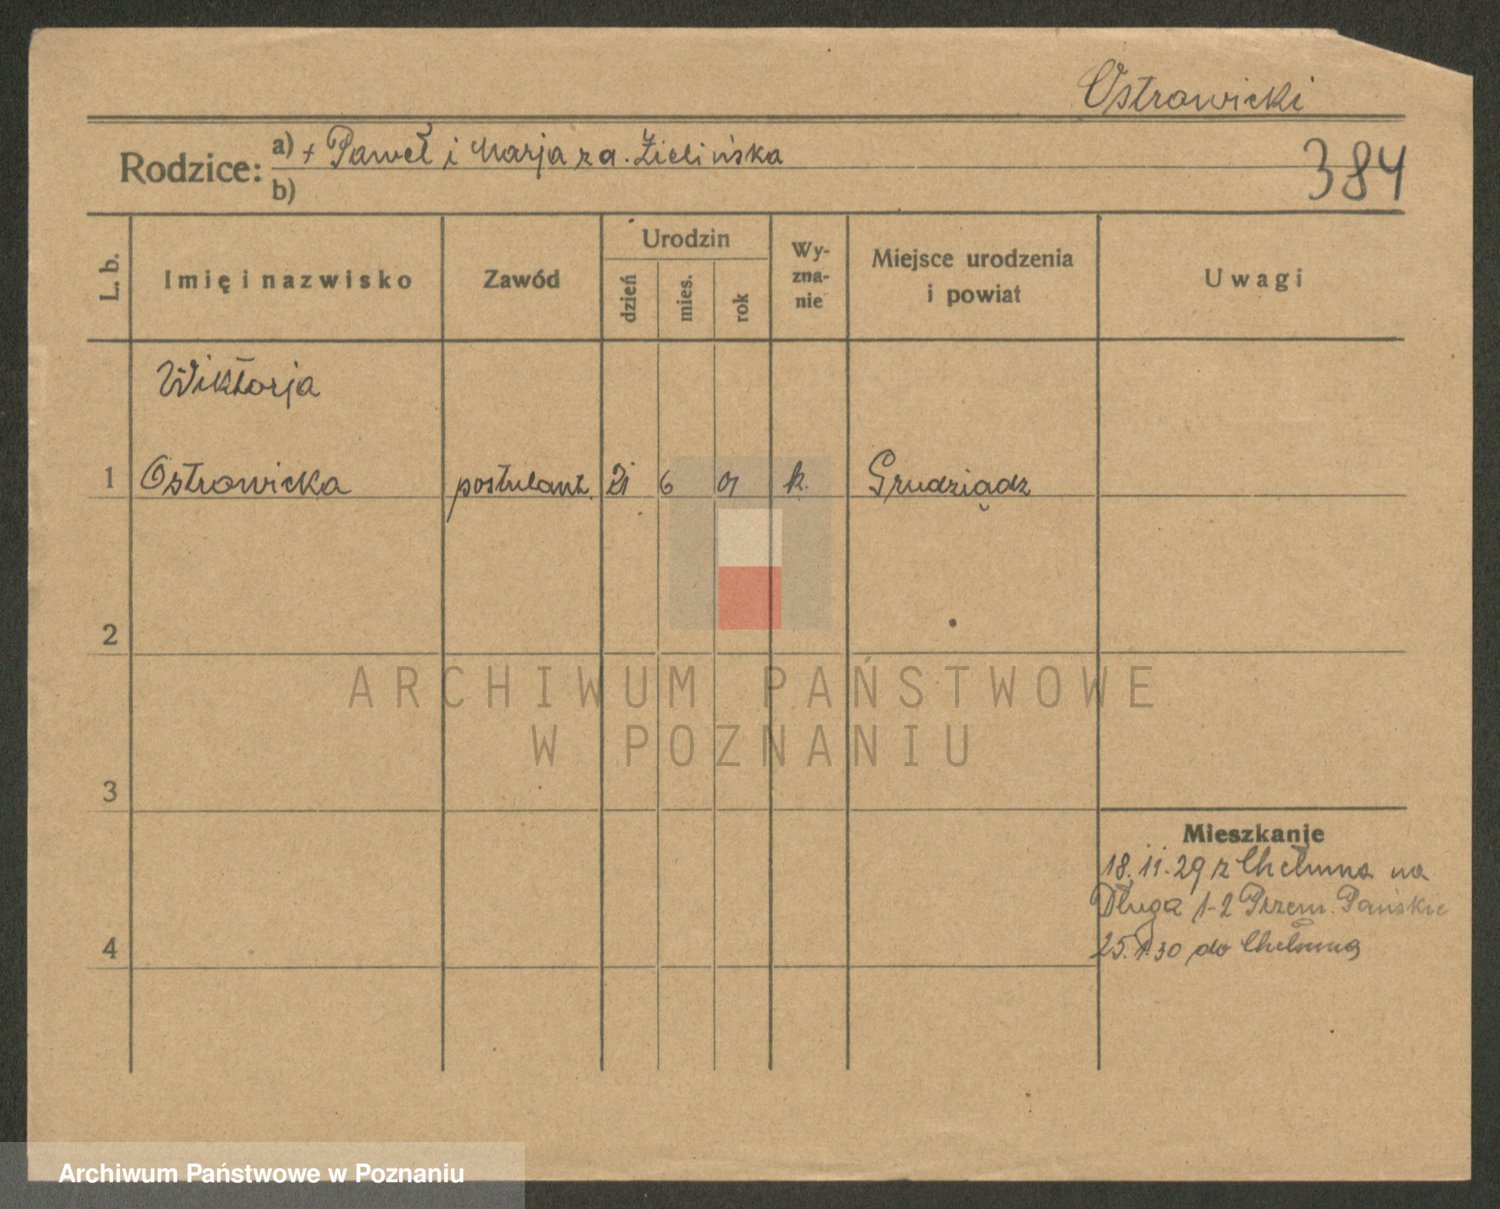 Ostrowicki
Rodzice:
a) + Paweł i Marja z d. Zielińska
b)
384
L. b.
Imię i nazwisko
Zawód
Urodzin
dzień
mies.
rok
Wy-
zna-
nie
Miejsce urodzenia
i powiat
Uwagi
Wiktorja
1 Ostrowicka postulant. 21 6 01 k. Grudziądz
2
3
4
ARCHIWUM PAŃSTWOWE
W POZNANIU
Mieszkanie
18.11.29 z Chełmna na
Długa 1-2 Przem. Pańskie
25.1.30 do Chełmna
Archiwum Państwowe w Poznaniu